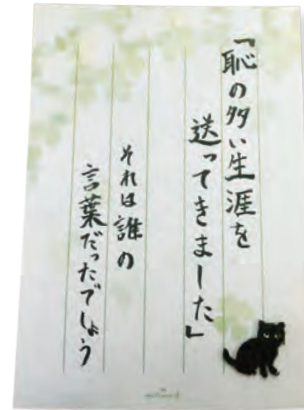 「恥の多い生涯を
送ってきました」
それは誰の
言葉だったでしょう